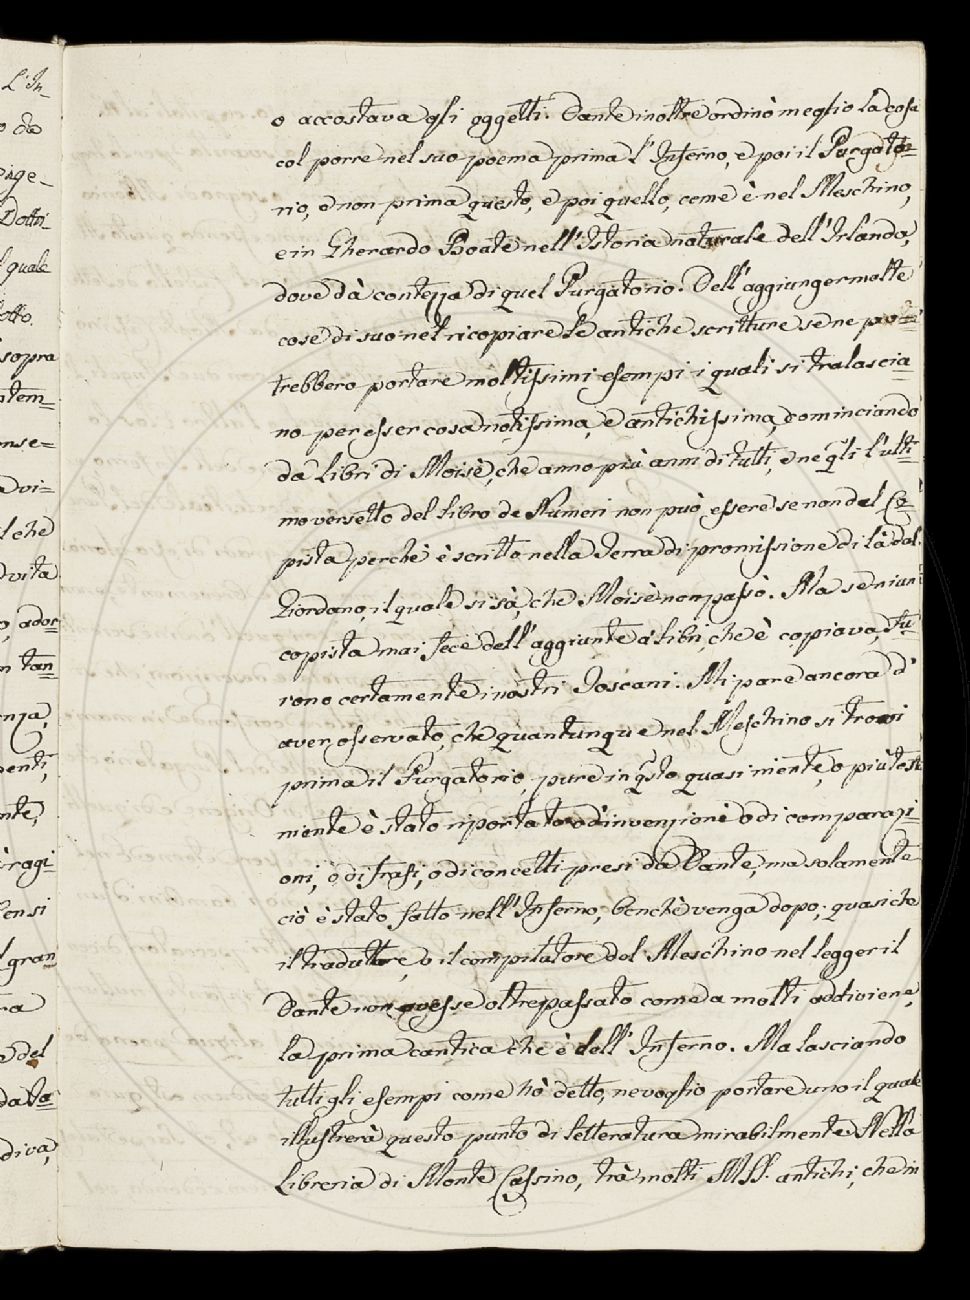 L'In_
o da
inge_
Dottri_
l quale
otto.
sopra
ntem=
nse=
a vi=
l che
vita
o, ador=
n tan=
nza,
enti,
nte,
ragi=
ensi
l gran
ra
a del
data=
diva,
o accostava gli oggetti. Dante inoltre ordinò meglio la cosa
col porre nel suo poema prima l'Inferno, e poi il Purgato=
rio, e non prima questo, e poi quello, come è nel Meschino,
e in Gherardo Boate nell'Istoria naturale dell'Irlanda,
dove dà contezza di quel Purgatorio. Dell'aggiunger molte
cose di suo nel ricopiare le antiche scritture se ne po=
trebbero portare moltissimi esempi i quali si tralascia=
no per esser cosa notissima, e antichissima, cominciando
da Libri di Moisè, che anno più anni di tutti, e ne qli l'ulti=
mo versetto del libro de Numeri non può essere se non del Co=
pista perchè è scritto nella Terra di promissione di là dal
Giordano, il quale si sà, che Moisè non passò. Ma se niun
copista mai fece dell'aggiunte a' libri, che è copiava, fu=
rono certamente i nostri Toscani. Mi pare ancora d'
aver osservato, che quantunque nel Meschino si trovi
prima il Purgatorio, pure in qsto quasi niente, o più tosto
niente è stato riportato ò d'invenzione ò di comparazi=
oni, ò di frasi, o di concetti presi da Dante, ma solamente
ciò è stato fatto nell'Inferno, benchè venga dopo; quasi che
il traduttore, o il compilatore del Meschino nel legger il
Dante non avesse oltrepassato come a molti addiviene,
la prima cantica che è dell'Inferno. Ma lasciando
tutti gli esempi come hò detto, ne voglio portare uno il quale
illustrerà questo punto di letteratura mirabilmente. Nella
Libreria di Monte Cassino, trà molti MSS. antichi, che in